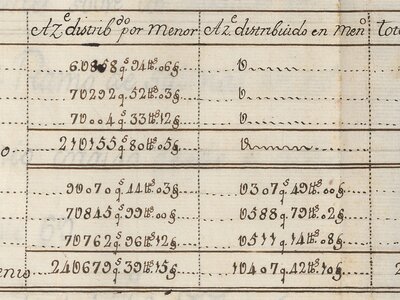 Az.^e distrib.^do por Menor Az.^e distribuido en Men.^o Tot
6U858 q.^s 94 lb.^s 06 §
U
7U292 q.^s 52 lb.^s 3 §
U
7U004 q.^s 33 lb.^s 12 §
U
o 21U155 q.^s 80 lb.^s 05 §
U
9U070 q.^s 44 lb.^s 03 § U307 q.^s 49 lb.^s 00 §
7U845 q.^s 99 lb.^s 00 § U588 q.^s 79 lb.^s 02 §
7U762 q.^s 96 lb.^s 12 § U511 q.^s 14 lb.^s 08 §
enio 24U679 q.^s 39 lb.^s 15 § 1U407 q.^s 42 lb.^s 10 § 2